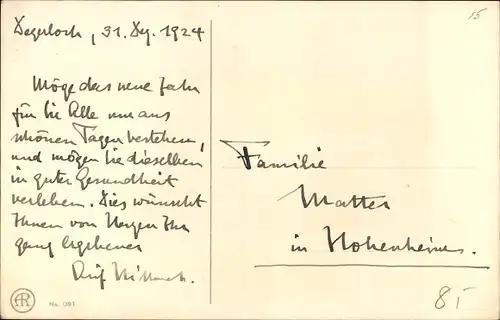 Degerloch, 31. Dez. 1924
Möge das neue Jahr
für Sie Alle nur aus
schönen Tagen bestehen,
und mögen Sie dieselben
in guter Gesundheit
verleben. Dies wünscht
Ihnen von Herzen Ihr
ganz ergebener
15
Familie
Matter
in Hohenheim.
85
AR
No. 1391